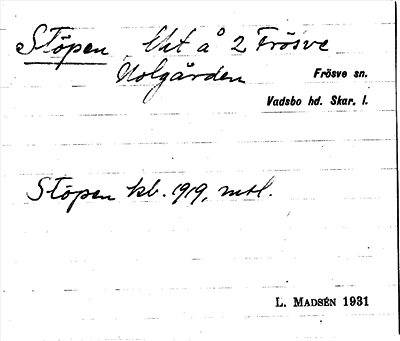 Stöpen, Uht å 2 Frösve
Nolgården Frösve sn.
Vadsbo hd. Skar. l.
Stöpen kb. 1919, mtl.
L. MADSÉN 1931